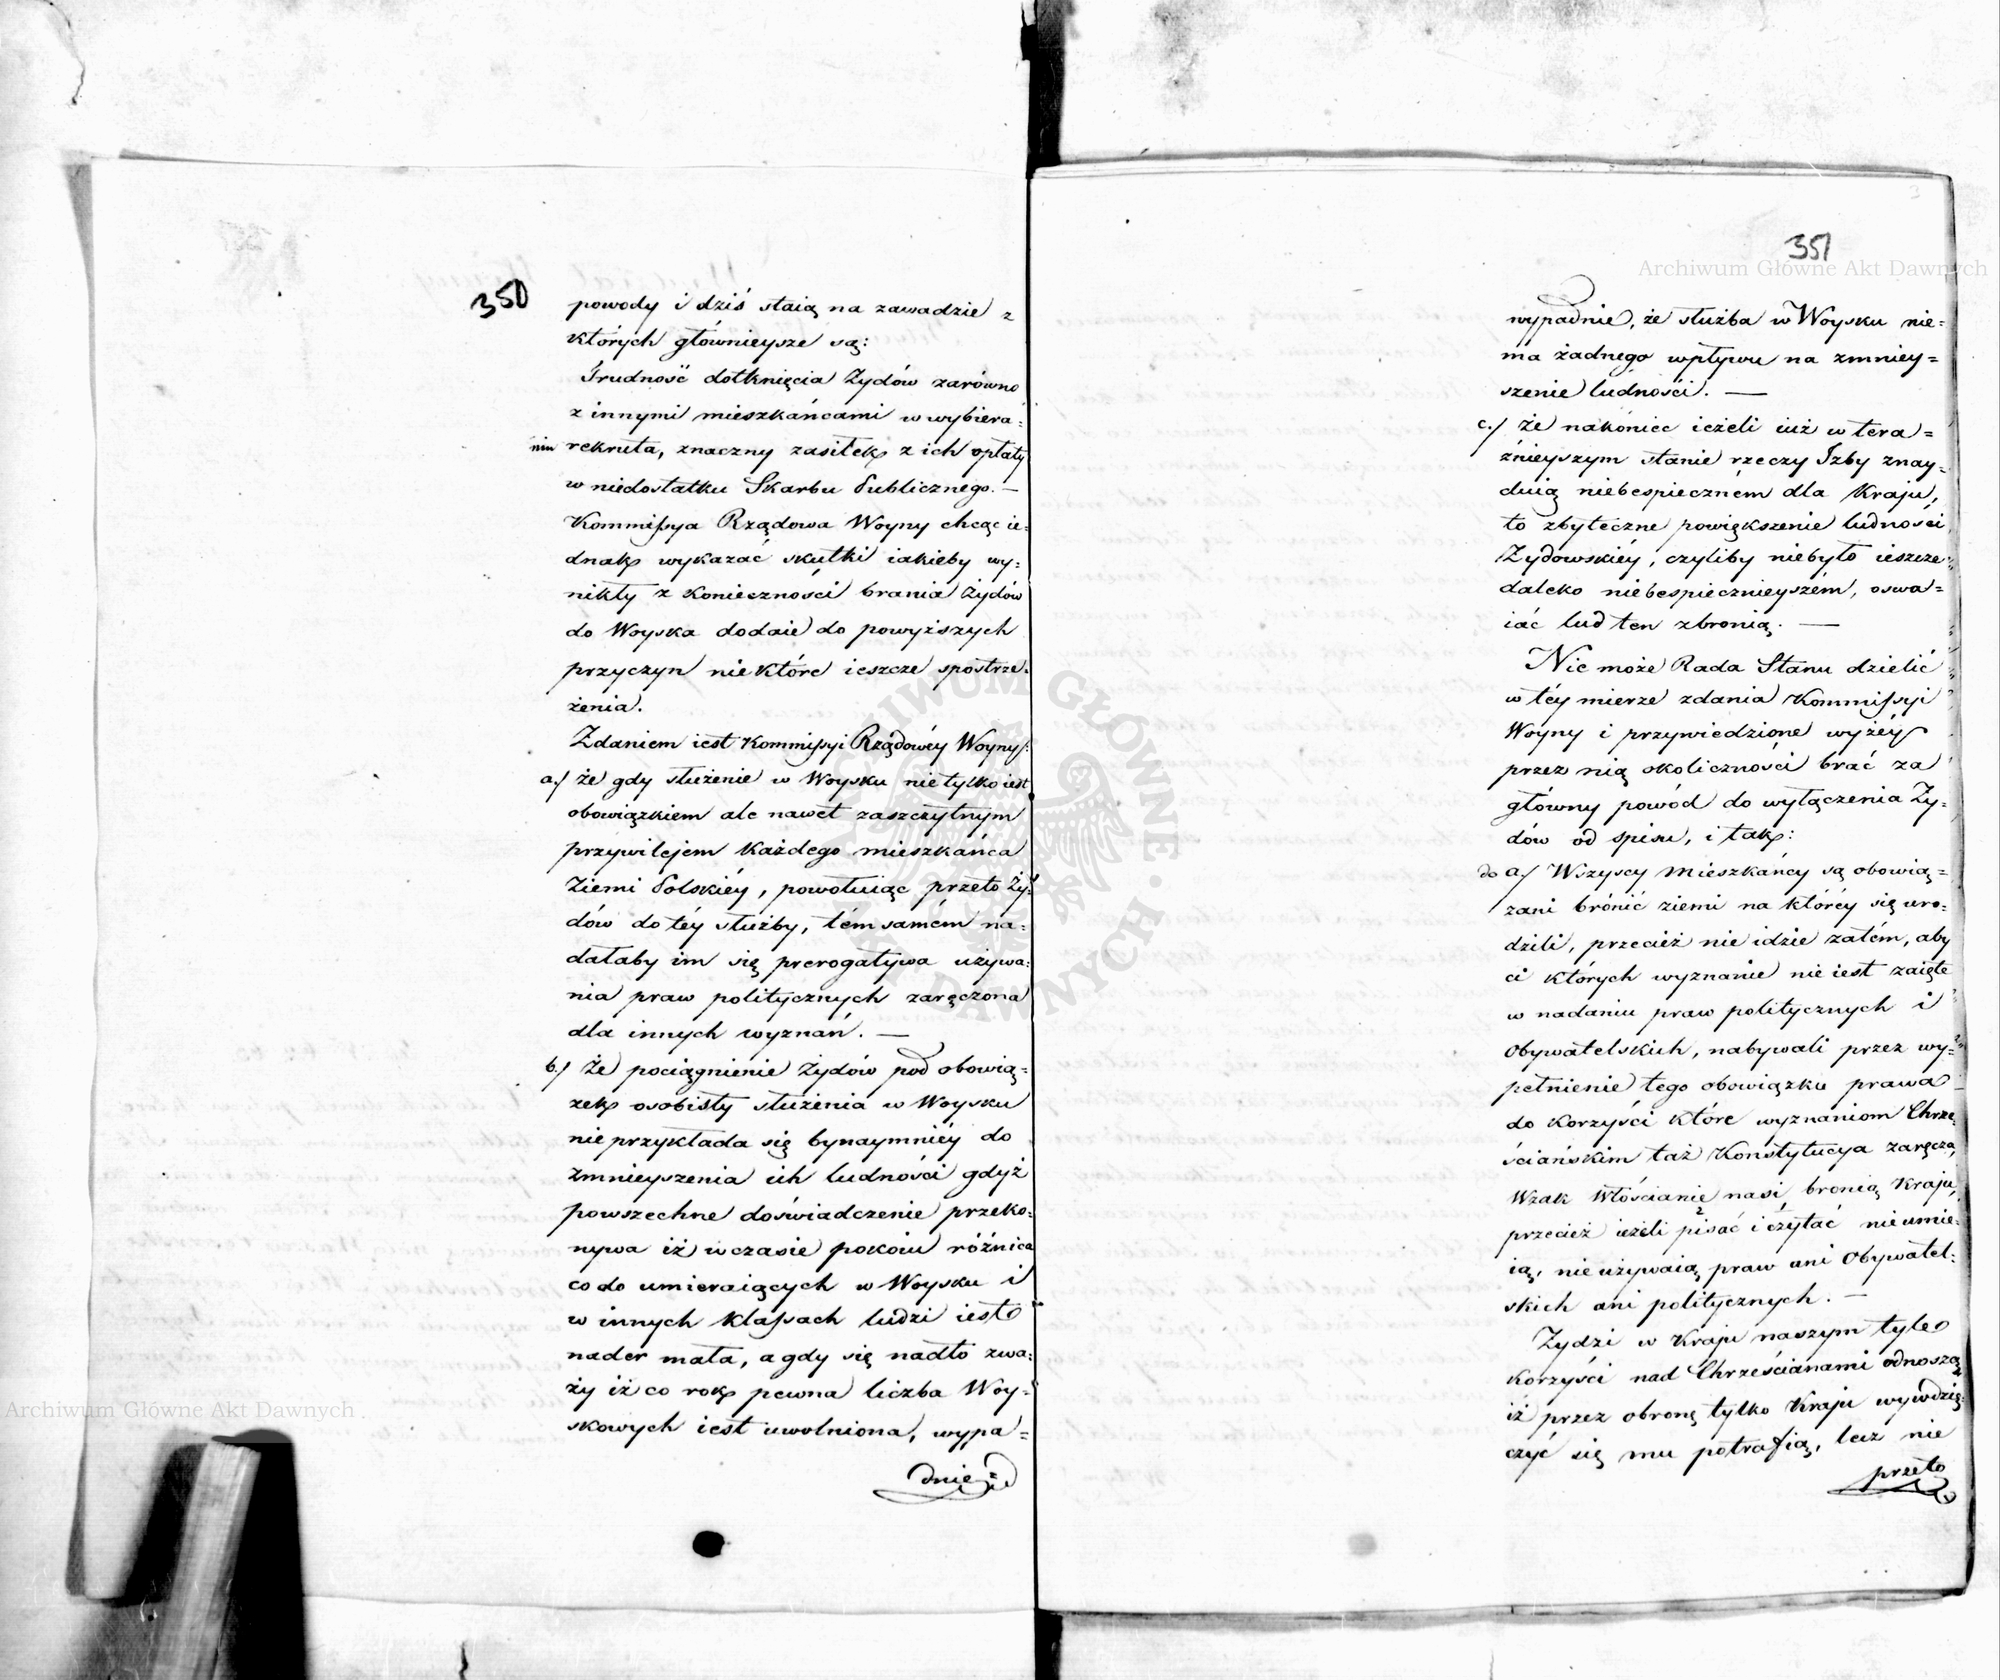 350
powody i dziś staią na zawadzie z
których głównieysze są:
Trudność dotknięcia Żydów zarówno
z innymi mieszkańcami w wybiera=
niu rekruta, znaczny zasiłek z ich opłaty
w niedostatku Skarbu Publicznego. —
Kommissya Rządowa Woyny chcąc ie=
dnak wykazać skutki iakieby wy=
nikły z konieczności brania Żydów
do Woyska dodaie do powyższych
przyczyn niektóre ieszcze spostrze=
żenia.
Zdaniem iest Kommissyi Rządowéy Woyny:
a./ że gdy służenie w Woysku nie tylko iest
obowiązkiem ale nawet zaszczytnym
przywilejem każdego mieszkańca
Ziemi Polskiéy, powołuiąc przeto Ży=
dów do téy służby, tém samém na=
dałaby im się prerogatywa używa=
nia praw politycznych zaręczona
dla innych wyznań. —
b./ Że pociągnienie Żydów pod obowią=
zek osobisty służenia w Woysku
nie przykłada się bynaymniéy do
zmnieyszenia ich ludności gdyż
powszechne doświadczenie przeko=
nywa iż w czasie pokoiu różnica
co do umieraiących w Woysku i
w innych klassach ludzi iest
nader mała, a gdy się nadto zwa=
ży iż co rok pewna liczba Woy=
skowych iest uwolniona, wypa=
dnie
351
wypadnie, że służba w Woysku nie=
ma żadnego wpływu na zmniey=
szenie ludności. —
c./ że nakóniec ieżeli iuż w tera=
źnieyszym stanie rzeczy Izby znay=
duią niebespieczném dla Kraju,
to zbyteczne powiększenie ludności
Żydowskiéy, czyliby niebyło ieszcze
daleko niebespiecznieyszém, oswa=
iać lud ten z bronią. —
Nie może Rada Stanu dzielić
w téy mierze zdania Kommissyi
Woyny i przywiedzione wyżéy
przez nią okoliczności brać za
główny powód do wyłączenia Ży=
dów od spisu, i tak:
do a./ Wszyscy mieszkańcy są obowią=
zani brónić ziemi na któréy się uro=
dzili, przecież nie idzie zatém, aby
ci których wyznanie nie iest zaięte
w nadaniu praw politycznych i
Obywatelskich, nabywali przez wy=
pełnienie tego obowiązku prawa
do korzyści które wyznaniom Chrze=
ściańskim taż Konstytucya zaręcza,
Wszak Włościanie nasi bronią Kraju,
przecież ieżeli pisać i czytać nie umie=
ią, nie używaią praw ani Obywatel=
skich ani politycznych. —
Żydzi w Kraju naszym tyle
korzyści nad Chrześcianami odnoszą
iż przez obronę tylko Kraju wywdzię=
czyć się mu potrafią, lecz nie
przeto
Archiwum Główne Akt Dawnych
Archiwum Główne Akt Dawnych
ARCHIWUM GŁÓWNE AKT DAWNYCH